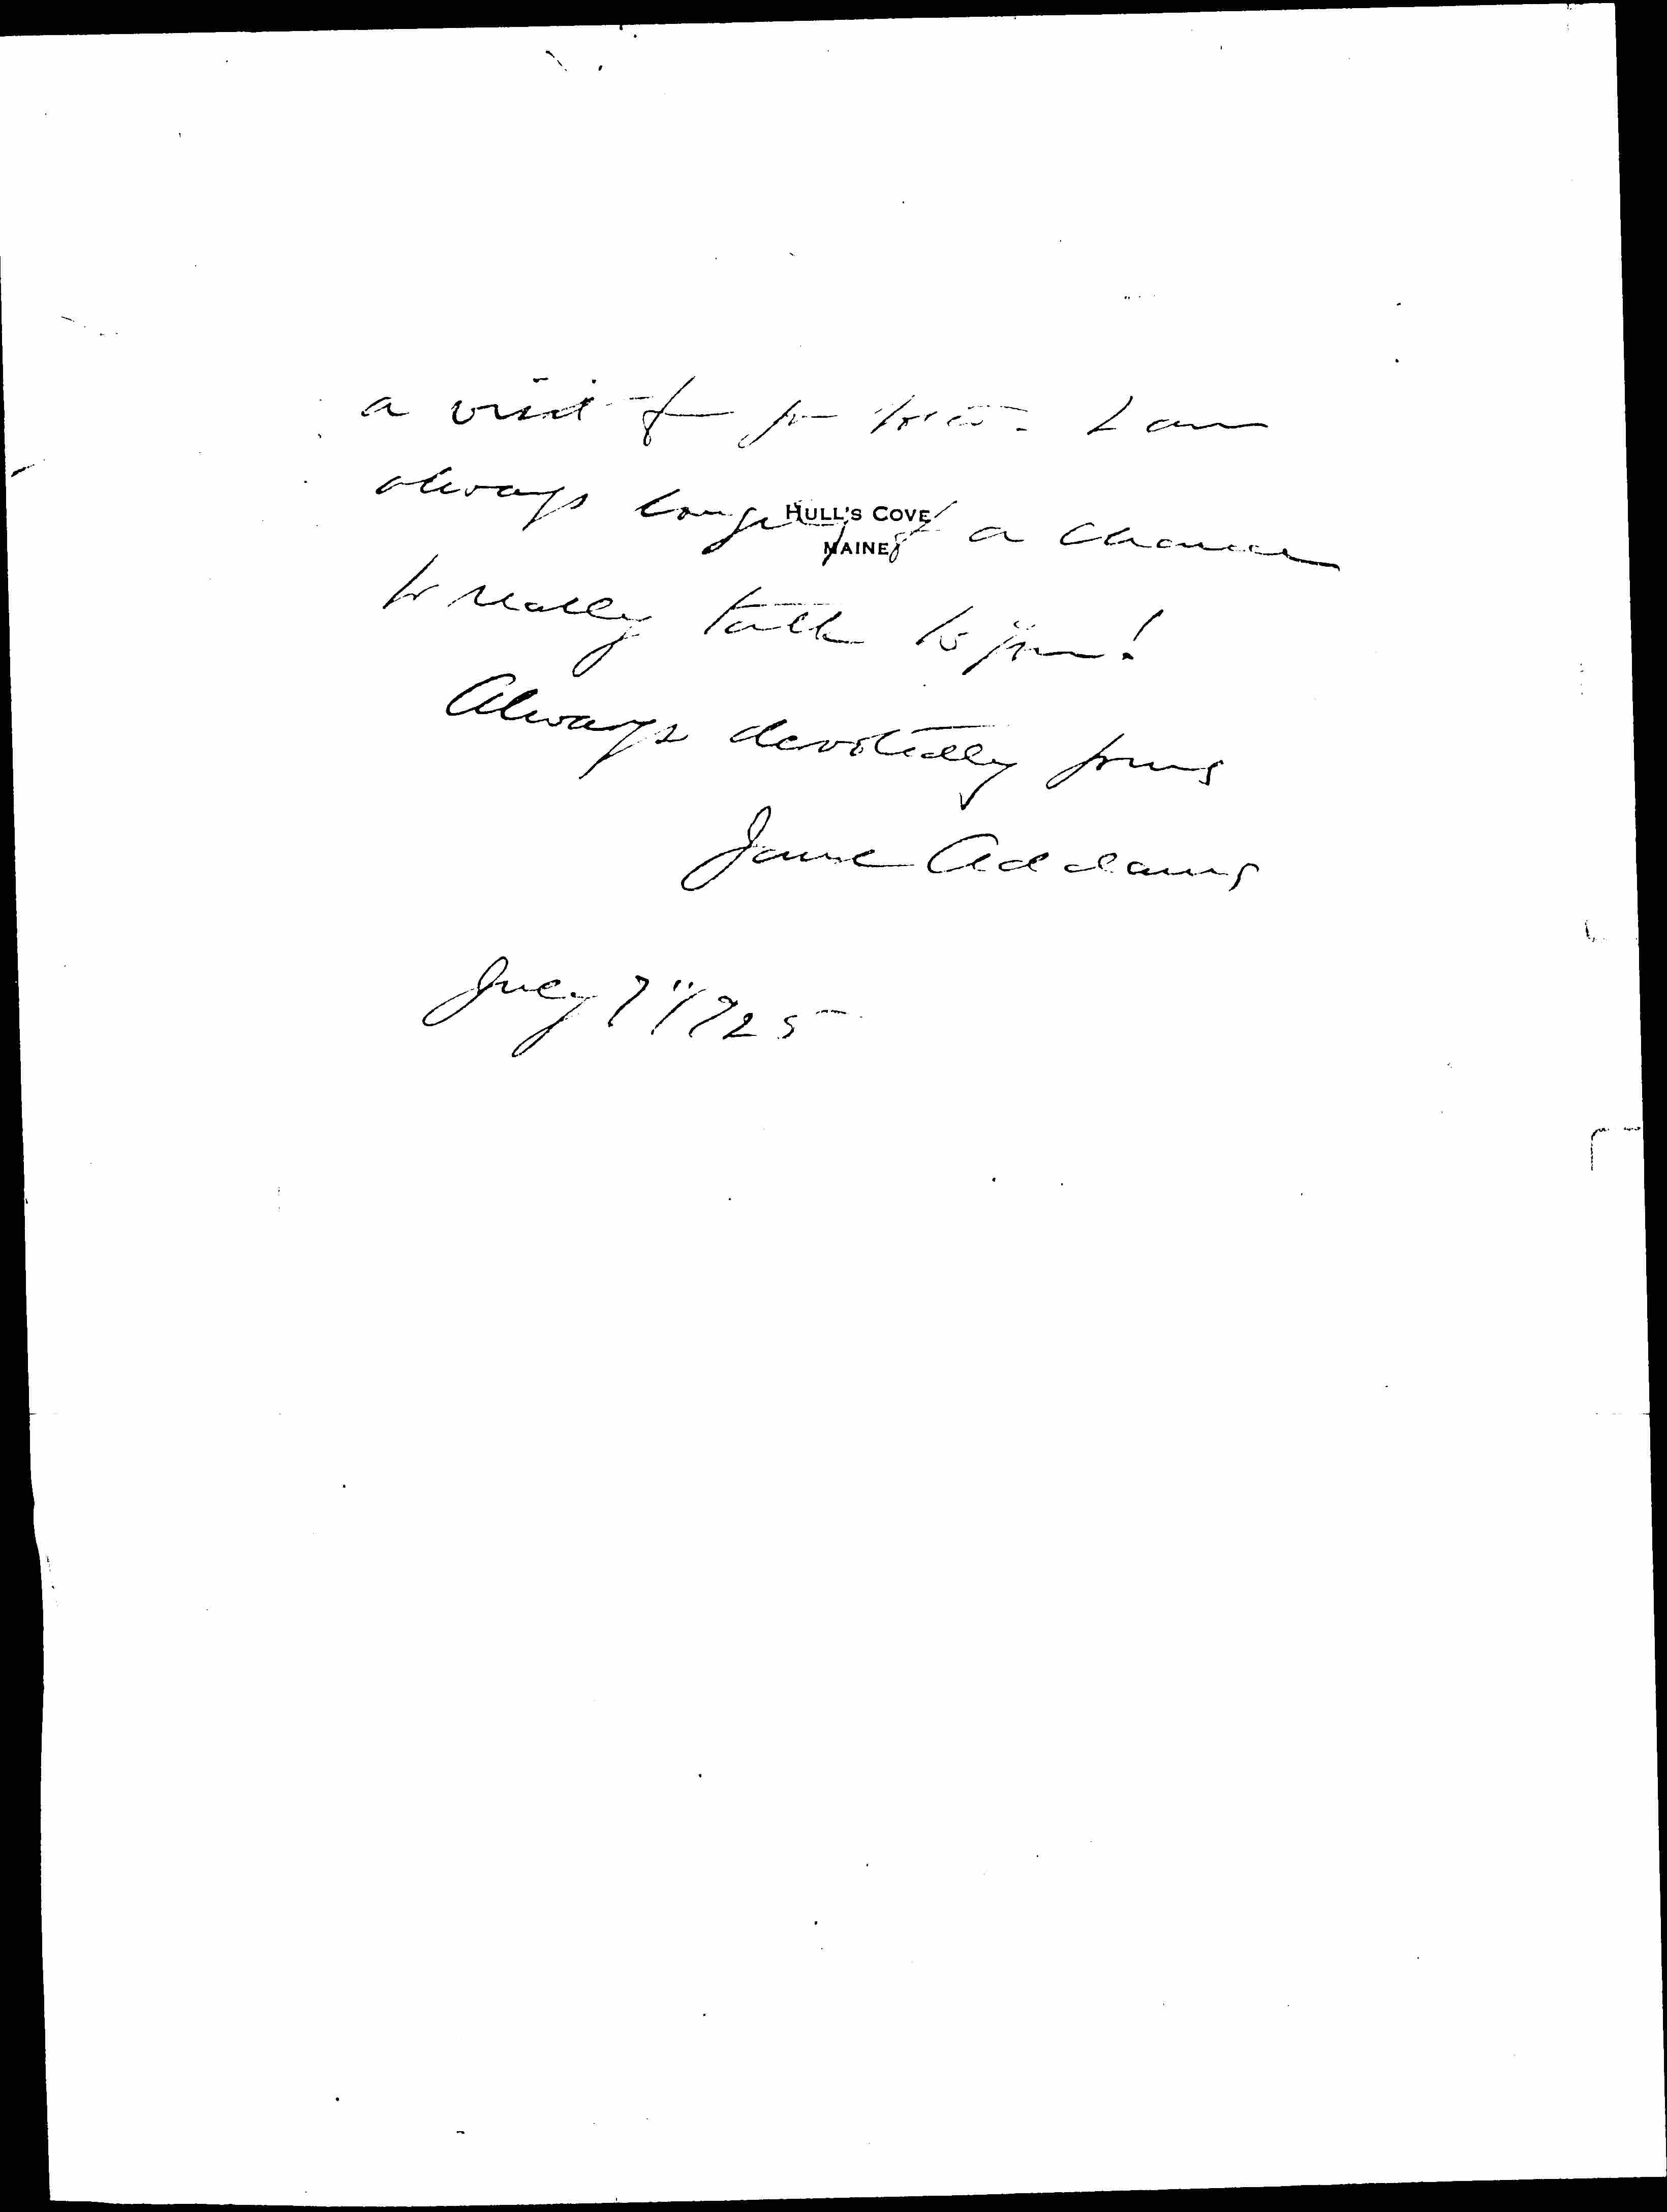 a visit from you too. I am
always longing for a chance
HULL'S COVE
MAINE
to really talk to you!
Always devotedly yours
Jane Addams
July 7" 1925